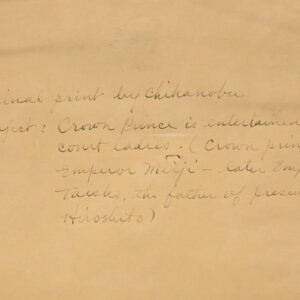 inal print by Chikanobu
ject: Crown Prince is entertained
court ladies. (Crown prin
Emperor Meiji – later Emp
Taisho, the father of presen
Hiroshito)